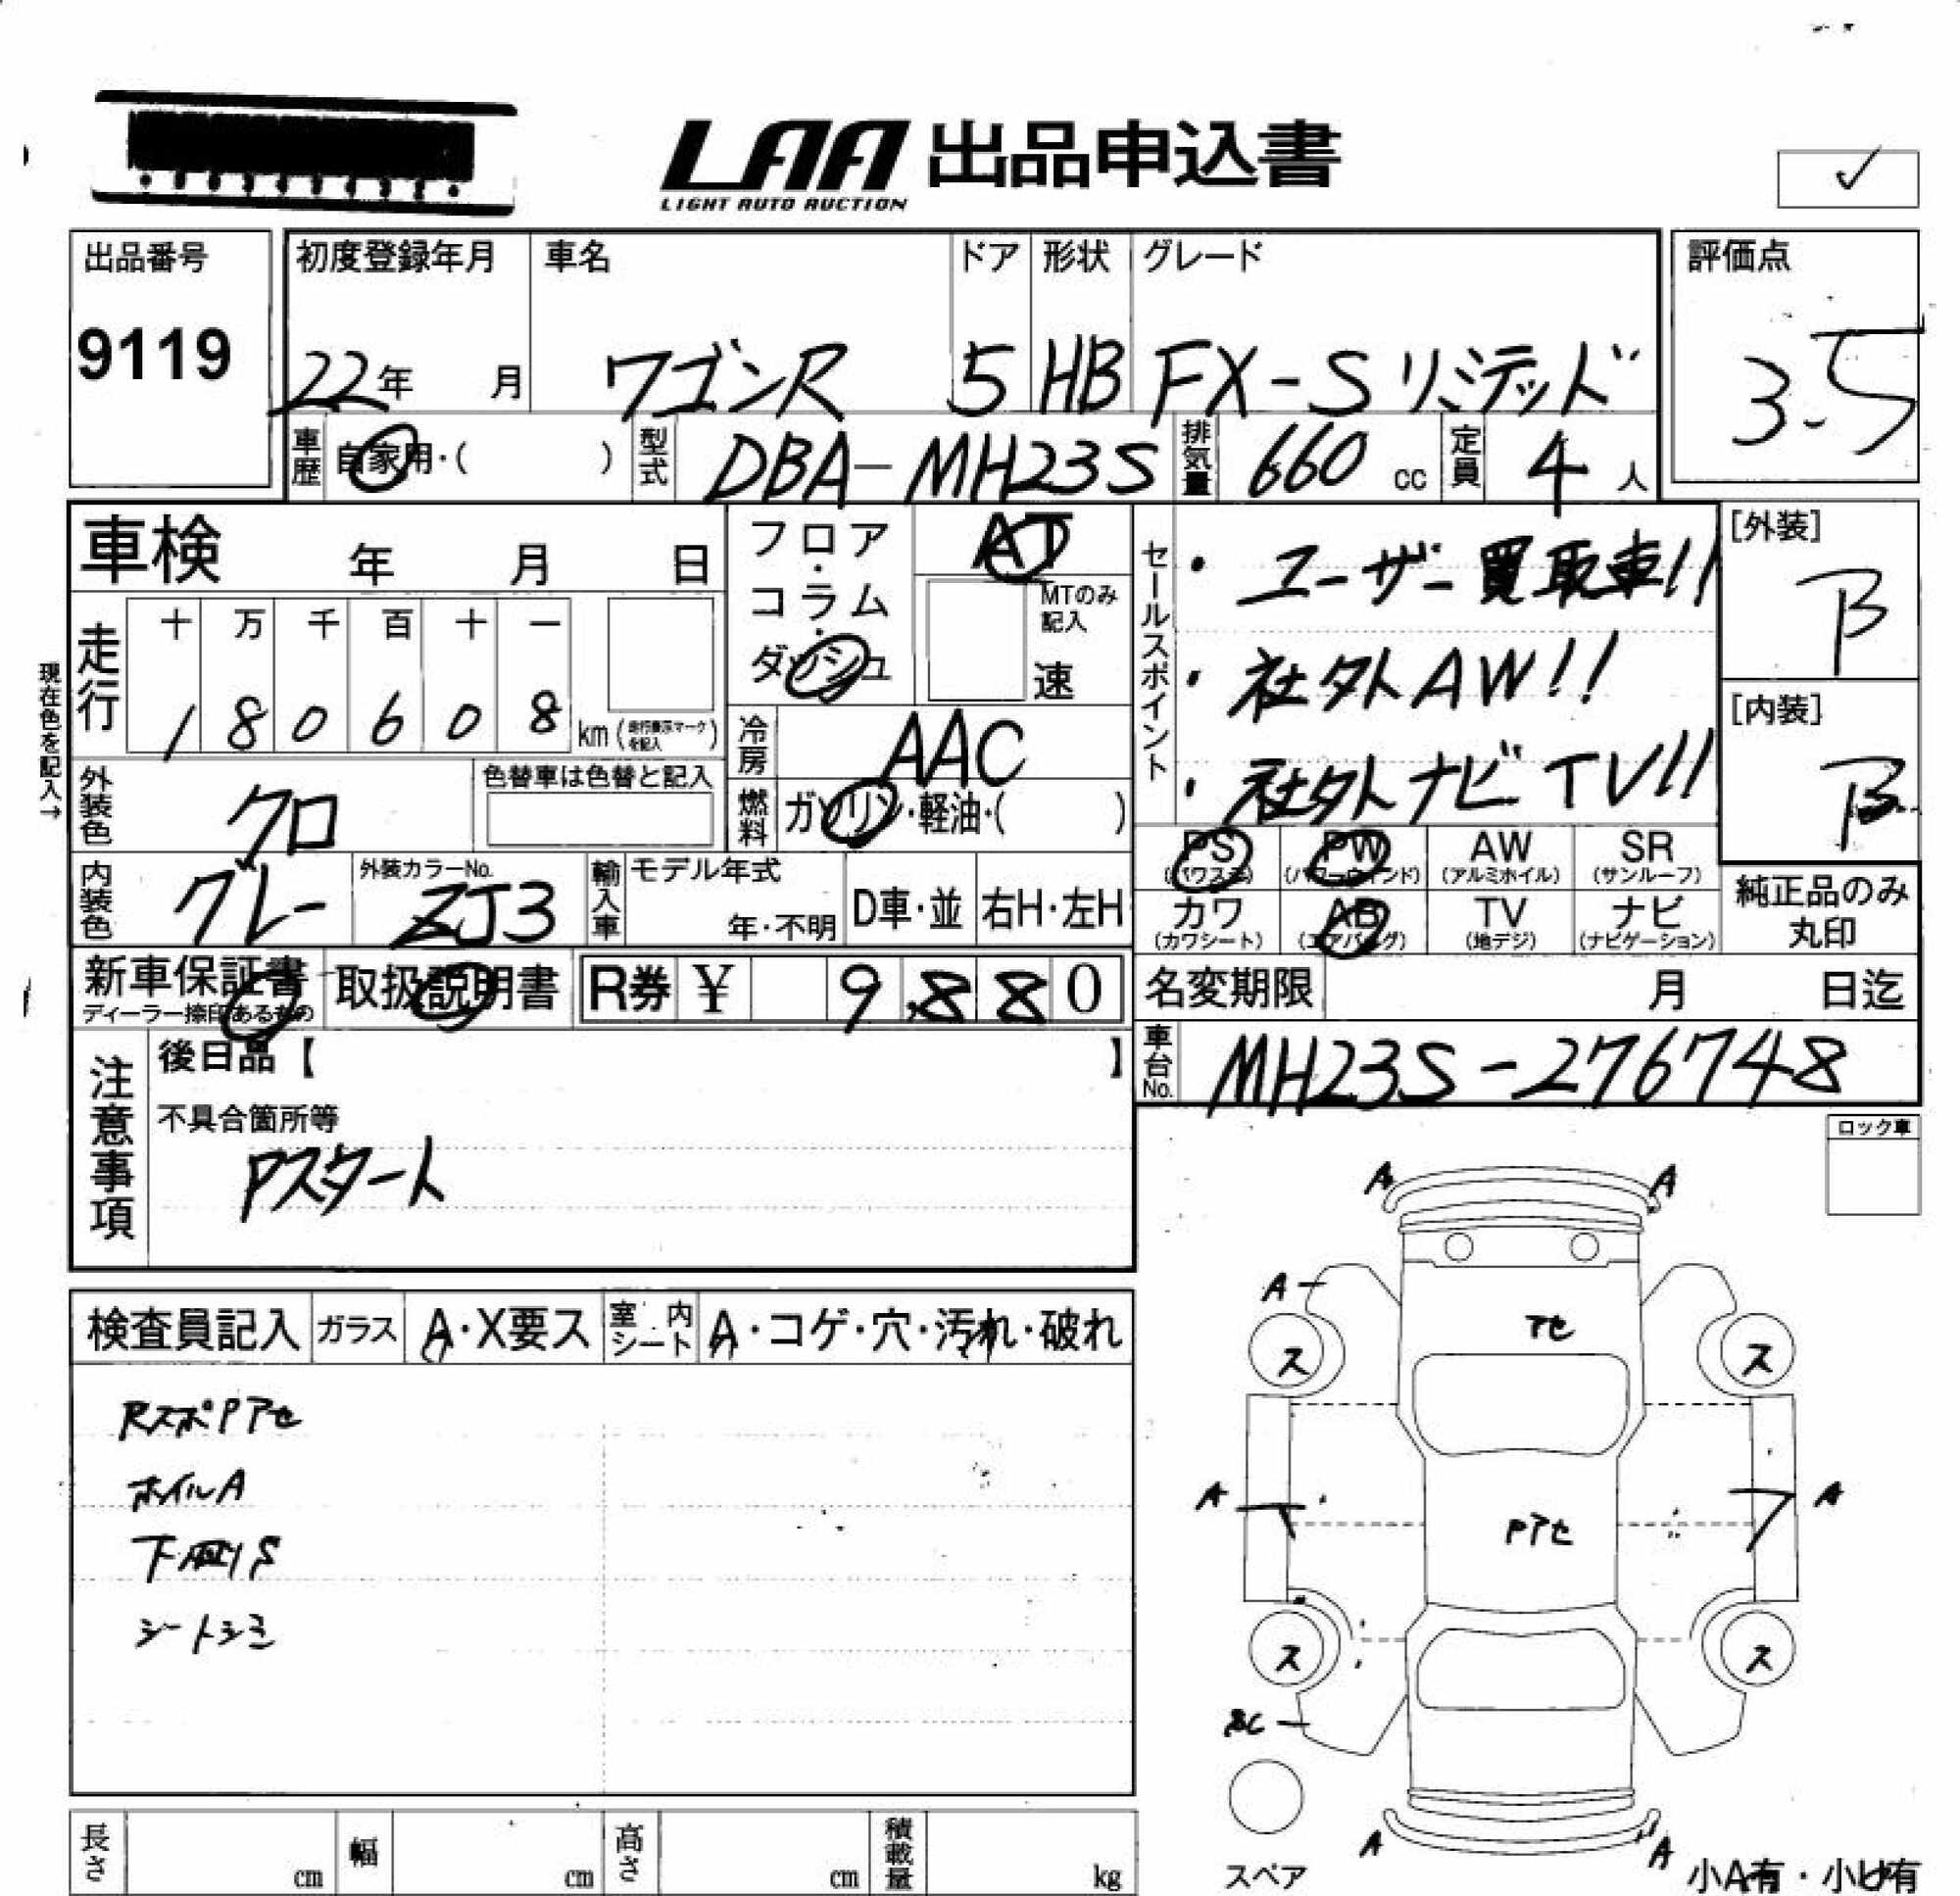 LAA 出品申込書
LIGHT AUTO AUCTION
✓
出品番号
9119
初度登録年月
22年 月
車名
ワゴンR
ドア
5
形状
HB
グレード
FX-S リミテッド
評価点
3.5
車歴 自家用・( )
型式 DBA-MH23S
排気量 660 cc
定員 4 人
車検 年 月 日
フロア・コラム・ダッシュ
AT
MTのみ記入
速
現在色を記入→
走行
十 万 千 百 十 一
1 8 0 6 0 8 km (走行表示マークを記入)
冷房 AAC
燃料 ガソリン・軽油・( )
外装色 クロ
色替車は色替と記入
内装色 グレー
外装カラーNo. ZJ3
輸入車 モデル年式
年・不明
D車・並
右H・左H
セールスポイント
・ユーザー買取車!!
・社外AW!!
・社外ナビTV!!
[外装]
B
[内装]
B
PS (パワステ)
PW (パワーウインド)
AW (アルミホイル)
SR (サンルーフ)
カワ (カワシート)
AB (エアバッグ)
TV (地デジ)
ナビ (ナビゲーション)
純正品のみ丸印
新車保証書
ディーラー捺印あるもの
取扱説明書
R券 ¥ 9,880
名変期限 月 日迄
車台No. MH23S-276748
注意事項
後日品【 】
不具合箇所等
Pスタート
ロック車
検査員記入
ガラス A・X要ス
室内シート A・コゲ・穴・汚れ・破れ
RスポPアセ
ホイルA
下廻りS
シートシミ
A A
A
アセ
ス ス
A A
Pアセ
ス ス
A A
スペア
小A有・小U有
長さ cm
幅 cm
高さ cm
積載量 kg